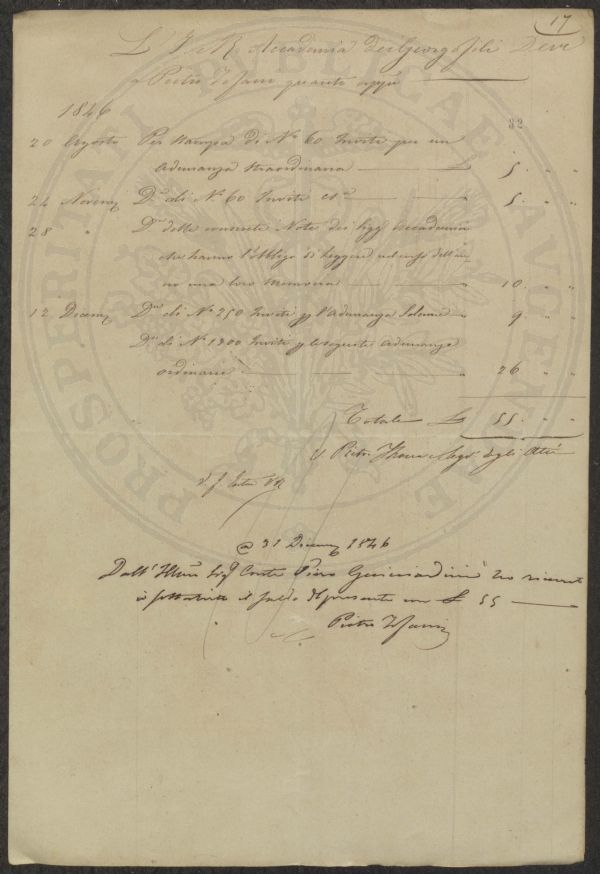 17
L' I. e R. Accademia dei Georgofili Deve
a Pietro quanto appo
1846
32
20 Agosto Per stampa di N° 60 Inviti per un
adunanza straordinaria £ 5. " "
24 Novem D.a di N° 60 Inviti " 5. " "
28 " D.a delle consuete Note dei Accademici
che hanno l'obbligo di leggere nel corso dell'an=
no una loro Memoria " 10. " "
12 Dicem D.a di N° 250 Inviti p l'Adunanza Solenne " 9. " "
D.a di N° 1300 Inviti p le seguenti adunanze
ordinarie " 26 " "
Totale £ 55. " "
V. Pietro Seg° degli Atti
a 31 Dicem 1846
Dall' Illmo Sigr Conte Piero Guicciardini ho ricevuto
io sottoscritto il saldo del presente in £ 55
Pietro
PROSPERITATI PUBLICAE AUGENDAE